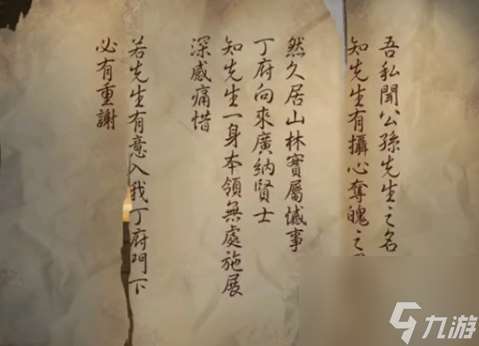 吾私聞公孫先生之名
知先生有攝心奪魄之
然久居山林實屬憾事
丁府向來廣納賢士
知先生一身本領無處施展
深感痛惜
若先生有意入我丁府門下
必有重謝
九游